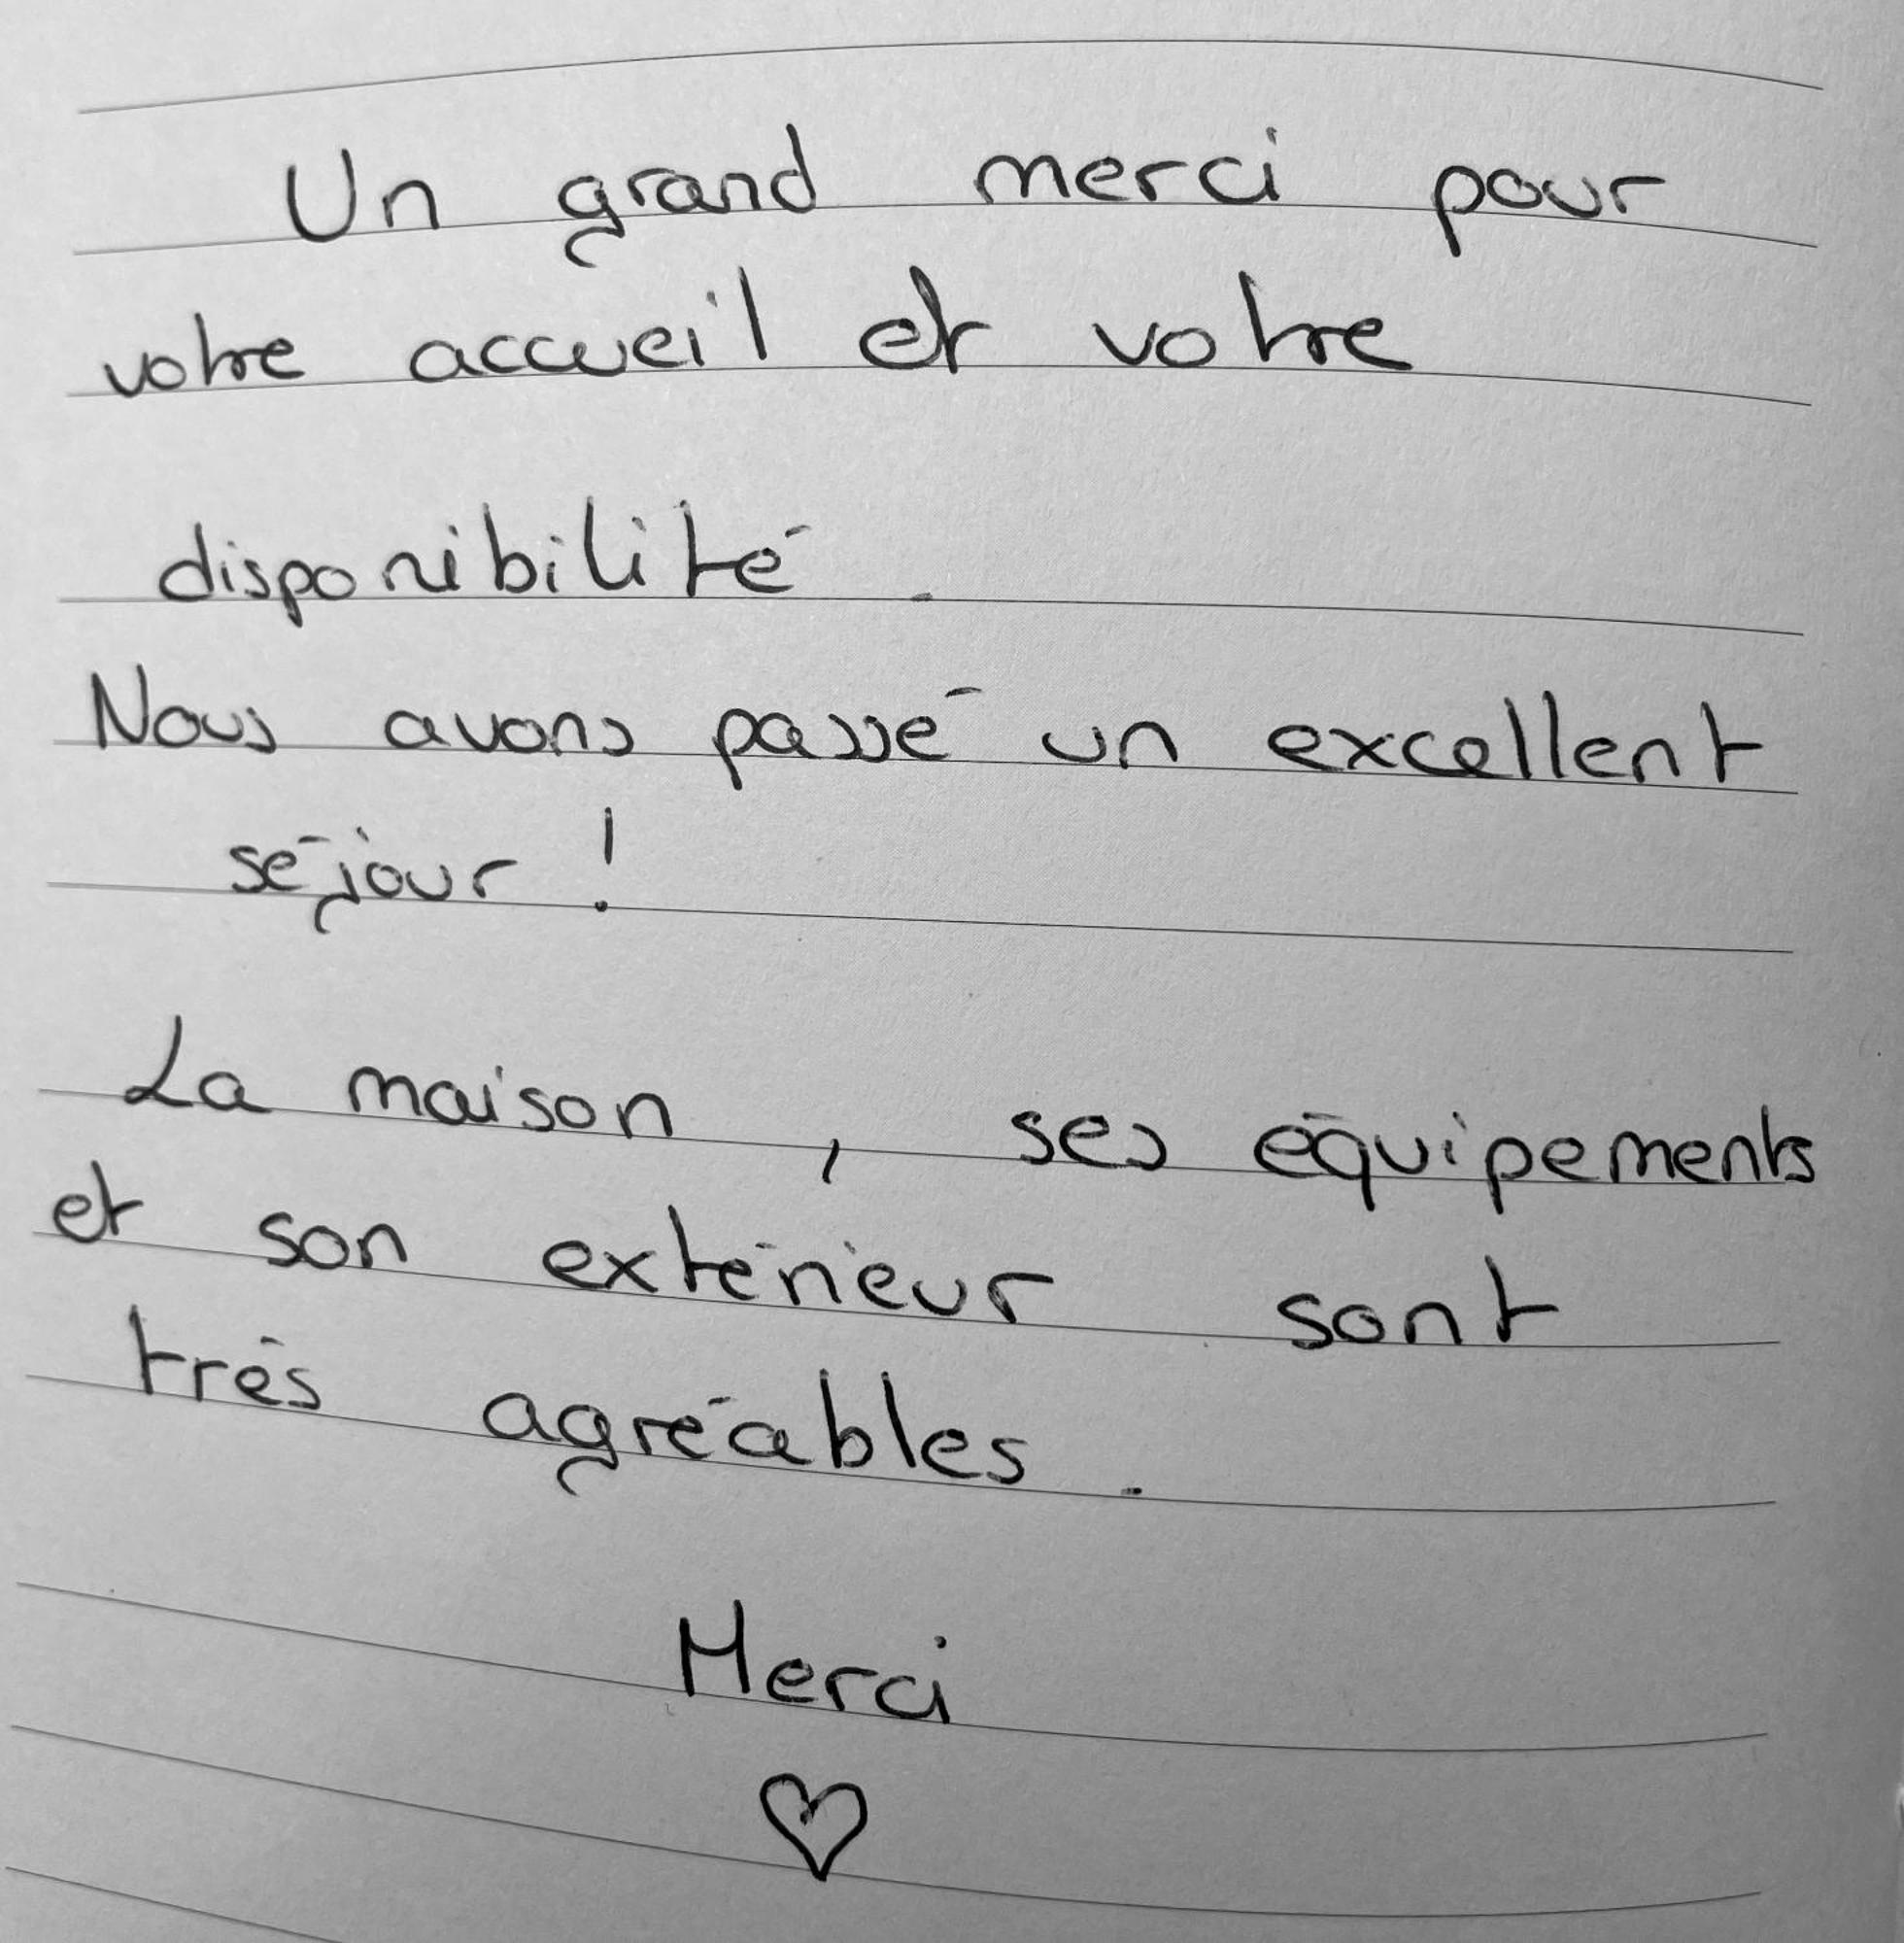 Un grand merci pour
votre accueil et votre
disponibilité.
Nous avons passé un excellent
séjour !
La maison, ses équipements
et son extérieur sont
très agréables.
Merci
♡